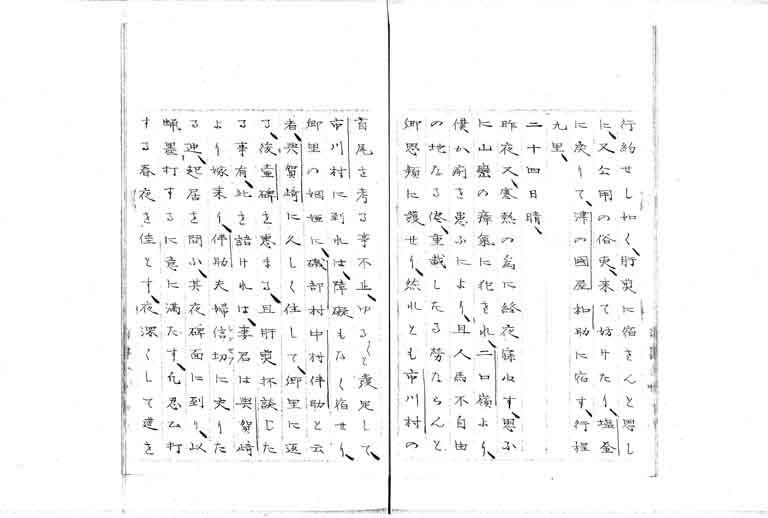 行約せし如く肝煎に宿さんと思し
に、又公用の俗吏来て妨けたり、塩釜
に戻りて、津の國屋和助に宿す、行程
九里、
二十四日晴、
昨夜又寒熱の為に終夜寐ねす、思ふ
に山癘の瘴氣に犯され、二口嶺より
僕か病を患ふにより、且人馬不自由
の地なる侭重載したる労ならんと
郷思頻に護せり、然れとも市川村の
首尾を考る事不止ゆる〱と發足して
市川村に到れは、障礙もなく宿せり、
郷里の姻姫に、磯部村中村伴助と云
者、與賀﨑に久しく住して、郷里に返
る、後壷碑を恵まる、且肝煎杯談した
る事有、此を語けれは、妻君は與賀﨑
より嫁来り、伴助夫婦信切に支りた
る迚、起居を問ふ、其夜碑面に到り、以
蝋墨打するに意に満たす、凡忍ム打
する春夜を佳とす、夜深くして遣を